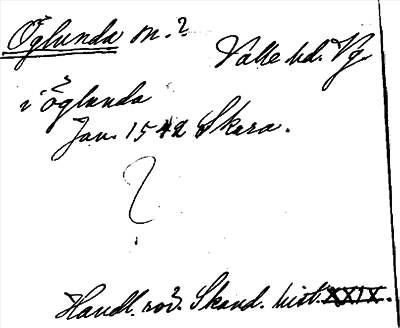 Öglunda sn.?
Valle hd. Vg.
i öglunda
Jan. 1542 Skara.
?
Handl. rör. Skand. hist. XXIX.